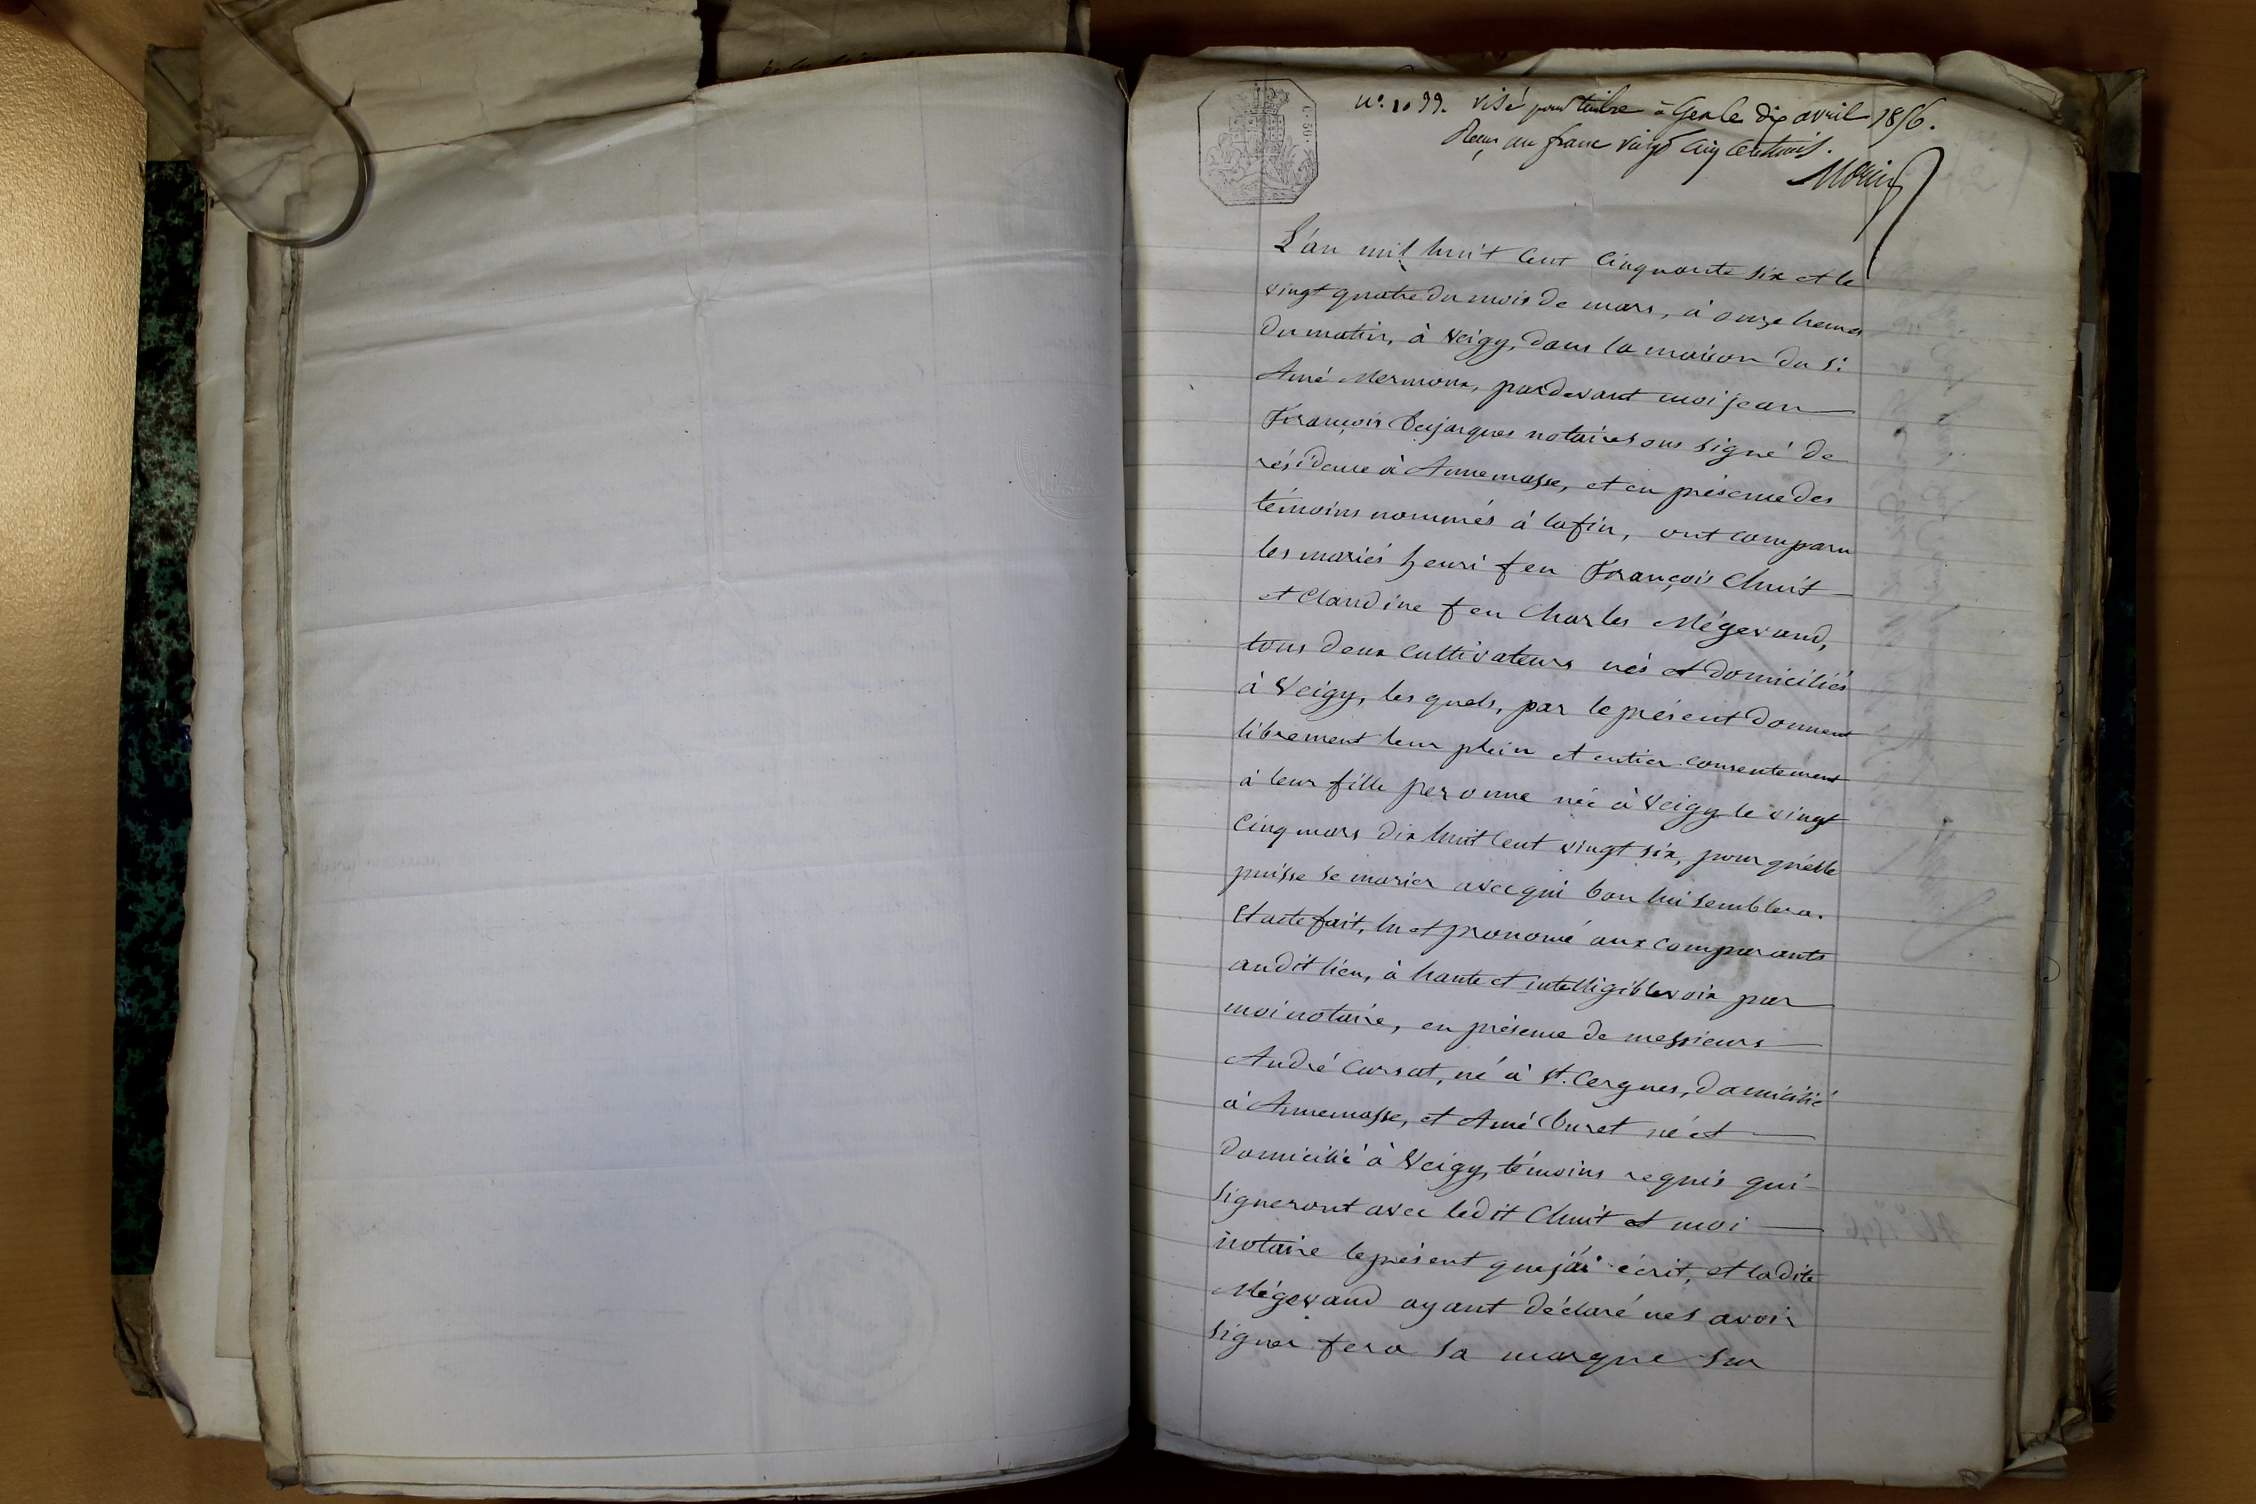 C. 50.
N°. 1099. visé pour timbre à Gex le dix avril 1856.
Reçu un franc vingt cinq centimes.
L'an mil huit cent cinquante six et le
vingt quatre du mois de mars, à onze heures
du matin, à Veigy, dans la maison du Sr
Amé Mermoux, pardevant moi jean
François notaire sous signé de
résidence à Annemasse, et en présence des
témoins nommés à la fin, ont comparu
les mariés henri feu François Chuit
et Claudine feu Charles Mégevand,
tous deux cultivateurs nés et domiciliés
à Veigy, les quels, par le présent donnent
librement leur plein et entier consentement
à leur fille peronne née à Veigy le vingt
cinq mars dix huit cent vingt six, pour qu'elle
puisse se marier avec qui bon lui semblera.
Et acte fait, lu et prononcé aux comparants
audit lieu, à haute et intelligible voix par
moi notaire, en présence de messieurs
André Cursat, né à St. Cergues, domicilié
à Annemasse, et Amé né et
domicilié à Veigy, témoins requis qui
signeront avec ledit Chuit et moi
notaire le présent que j'ai écrit, et la dite
Mégevand ayant déclaré ne savoir
signer fera sa marque sur